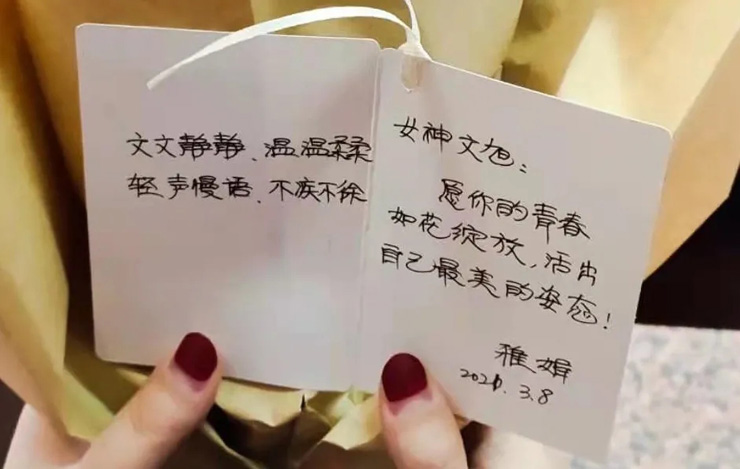 文文静静、温温柔柔
轻声慢语、不疾不徐
女神文旭：
愿你的青春
如花绽放，活出
自己最美的姿态！
雅娟
2021.3.8